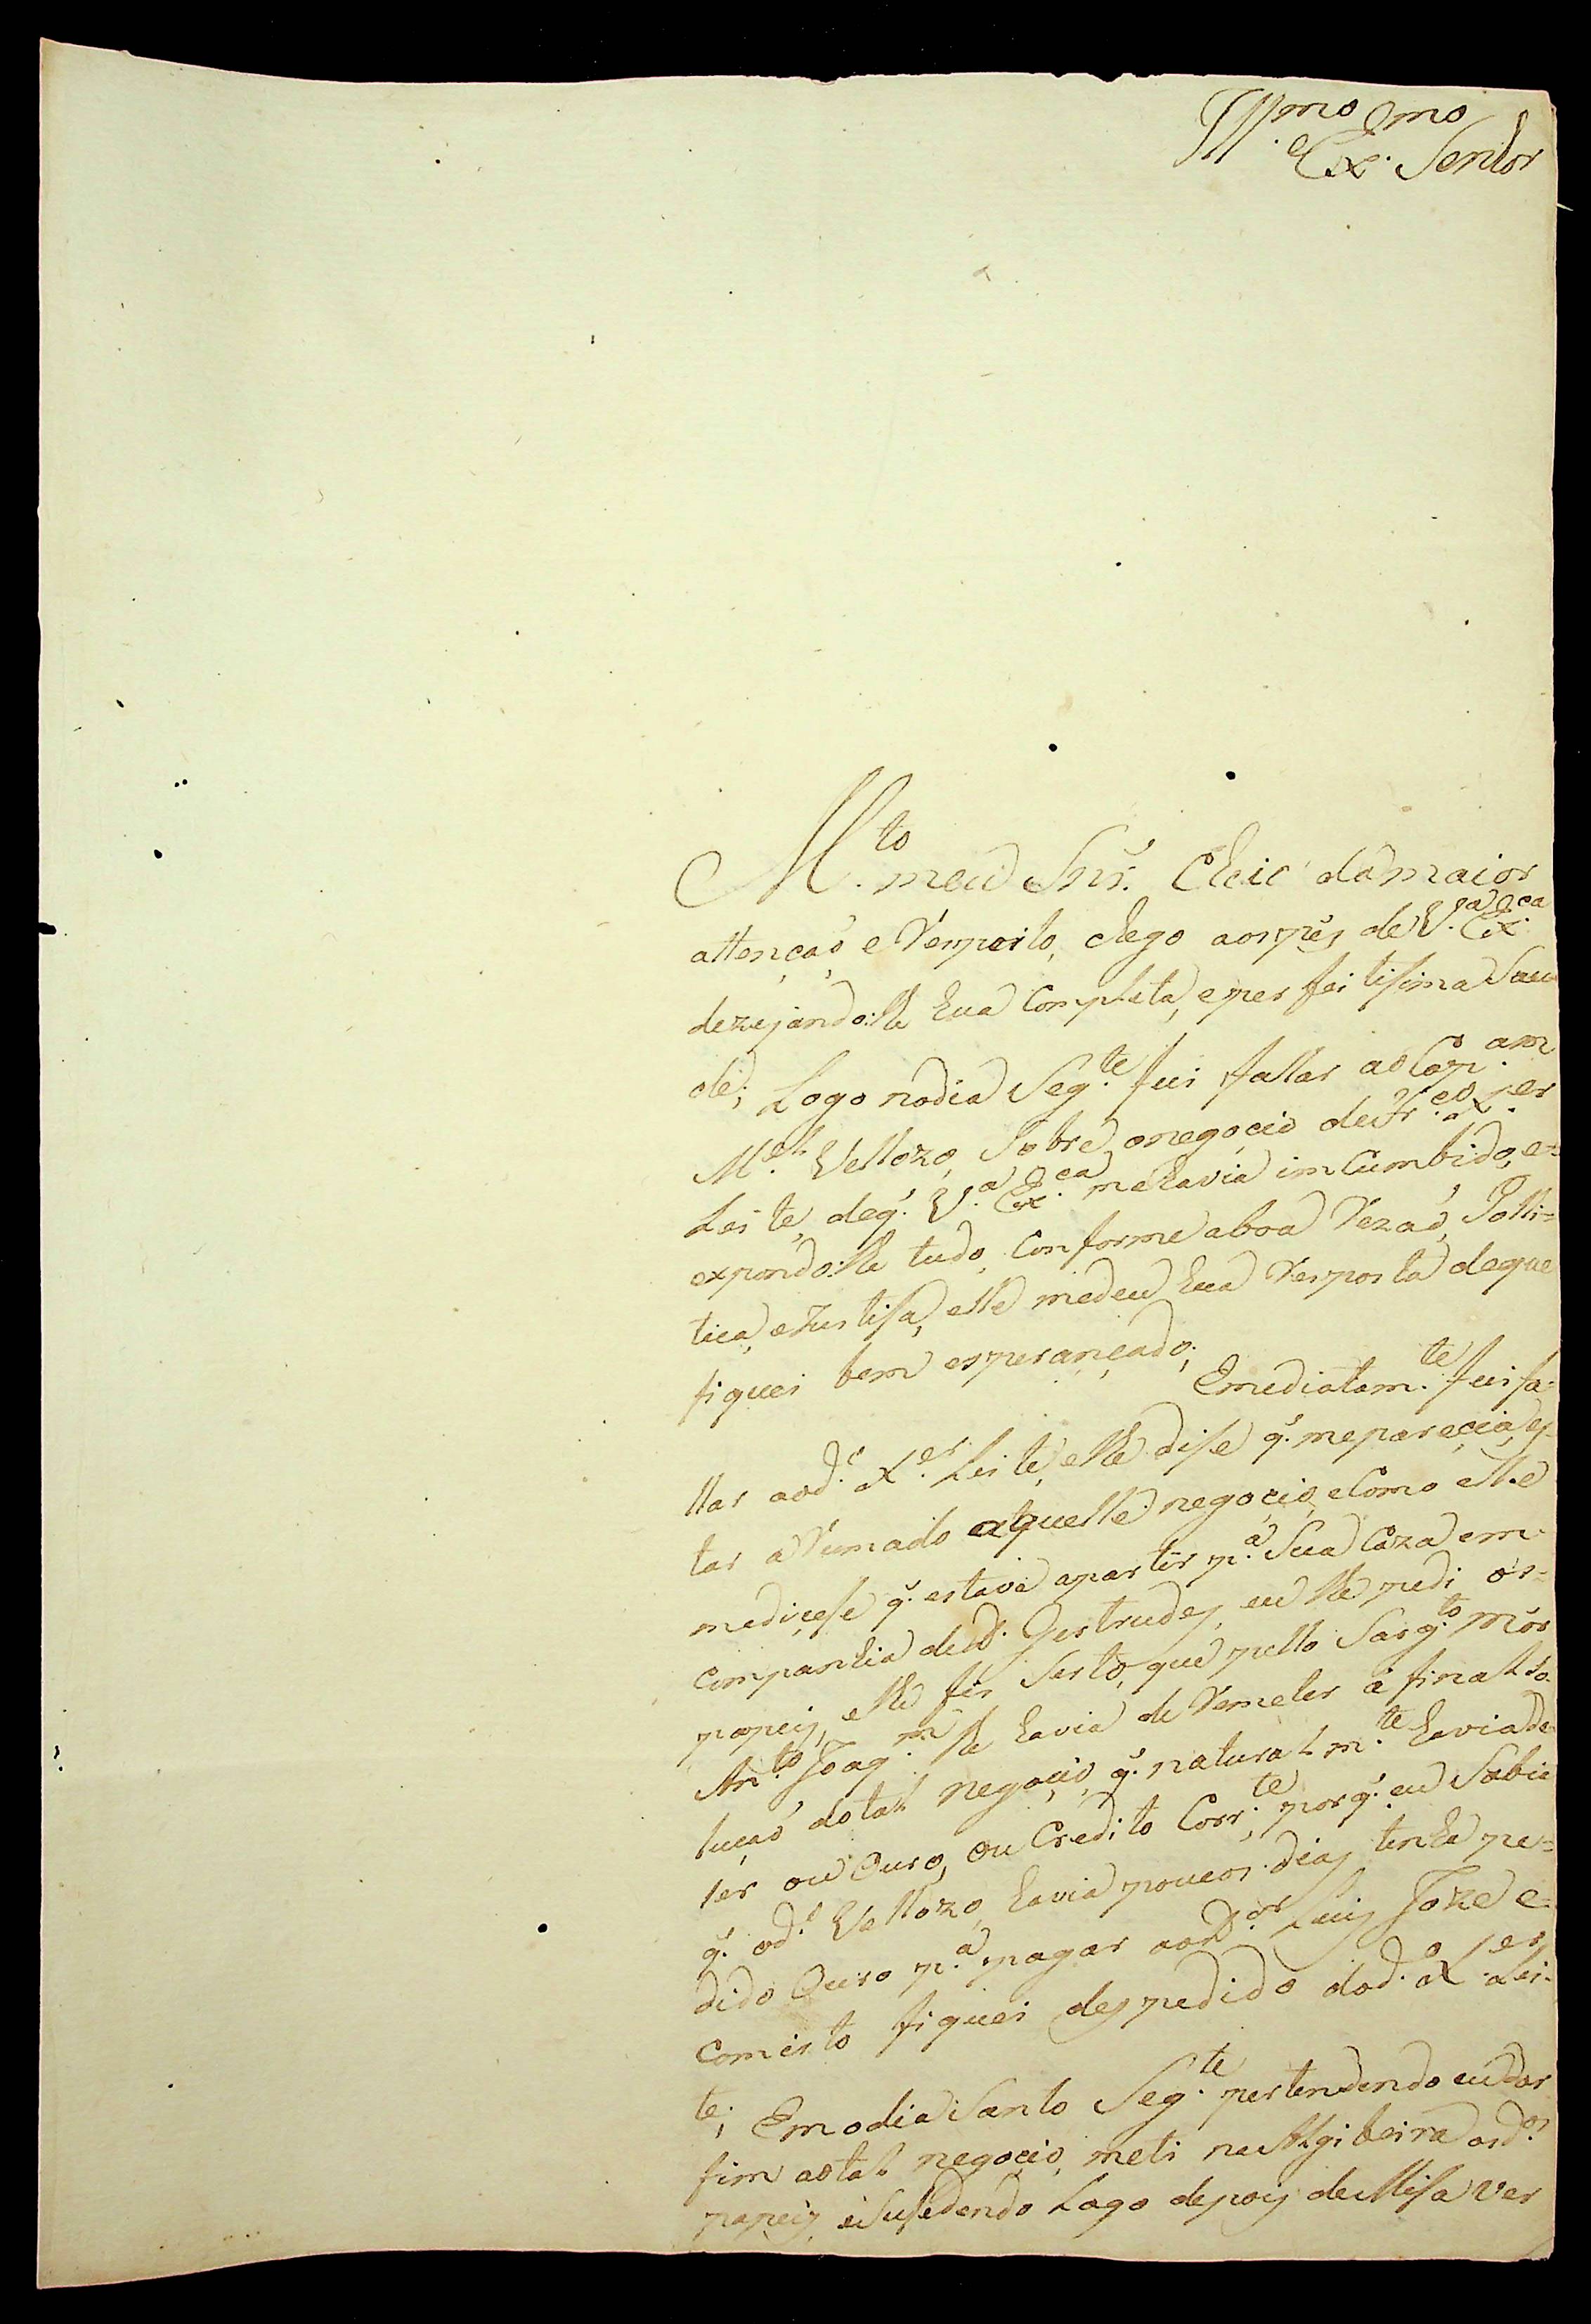 Ill.mo e Ex.mo Senhor
M.to meu Snr. Cheio da maior
attenção e Respeito, chego aos pes de V.a Ex.ca
dezejando:lhe hua Completa, e perfeitisima Sau
de; Logo no dia Seg.te fui fallar ao Cap.am
M.el Vellozo, Sobre o negocio de Fr.co X.er
Leite, de q. V.a Ex.ca me havia imCumbido, e=
expondo:lhe tudo, Conforme a boa Rezaõ, Polli=
tica, e Justisa, elle me deu hua Resposta de que
fiquei bem esperançado;
Emediatam.te fui fa=
llar ao d.o X.er Leite, e lhe dise q. me parecia, es=
tar aRumado aquelle negocio, e Como elle
me diçese q. estava a partir p.a Sua Caza em
companhia de D. Gertrudes, eu lhe pedi os=
papeis, e lhe fis Serto, que pello Sarg.to mór
An.to Joaq.m lhe havia de Remeter a final so=
lução do tal negocio, q. naturalm.te havia de
ser ou Ouro, ou Credito Corr.te, por q. eu Sabia
q. o d.o Vellozo, havia poucos dias tinha pe=
dido Ouro p.a pagar ao D.or Luis Joze e=
com isto fiquei despedido do d.o X.er Lei=
te; Em o dia Santo Seg.te pertendendo eu dar
fim ao tal negocio, meti na Algibeira os d.os
papeis, e Susedendo Logo depois de Misa ver